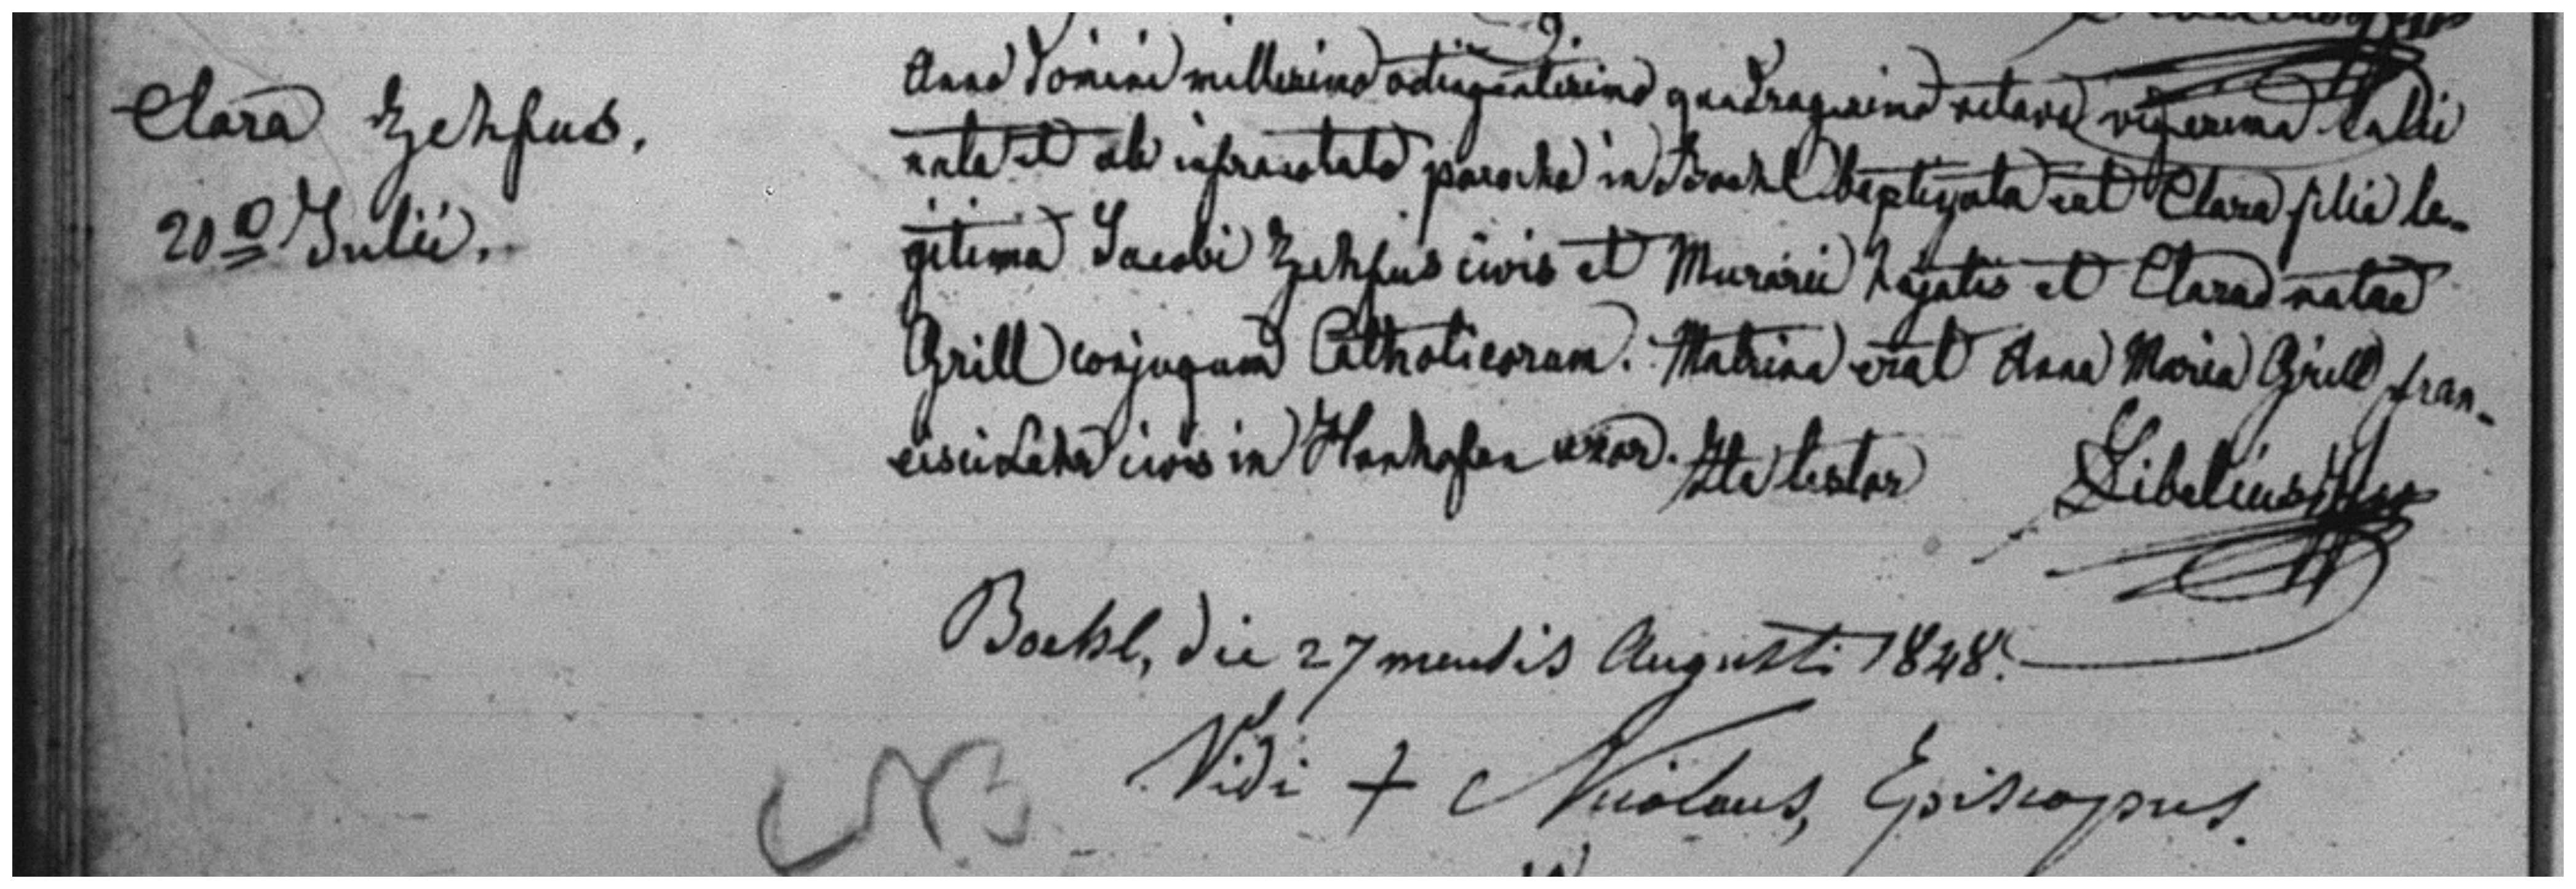 Clara Zehfus.
20ª Julii.
Anno Domini millesimo octingentesimo quadragesimo octavo vigesima Julii
nata et ab infranotato parocho in Boehl baptizata est Clara filia le-
gitima Jacobi Zehfus civis et Murarii hujatis et Clarae natae
Grill conjugum Catholicorum. Matrina erat Anna Maria Grill fran-
cisci Lehr civis in Hanhofen uxor. Ita testor Sibelius
Boehl, die 27 mensis Augusti 1848.
Vidi + Nicolaus, Episcopus.
NB